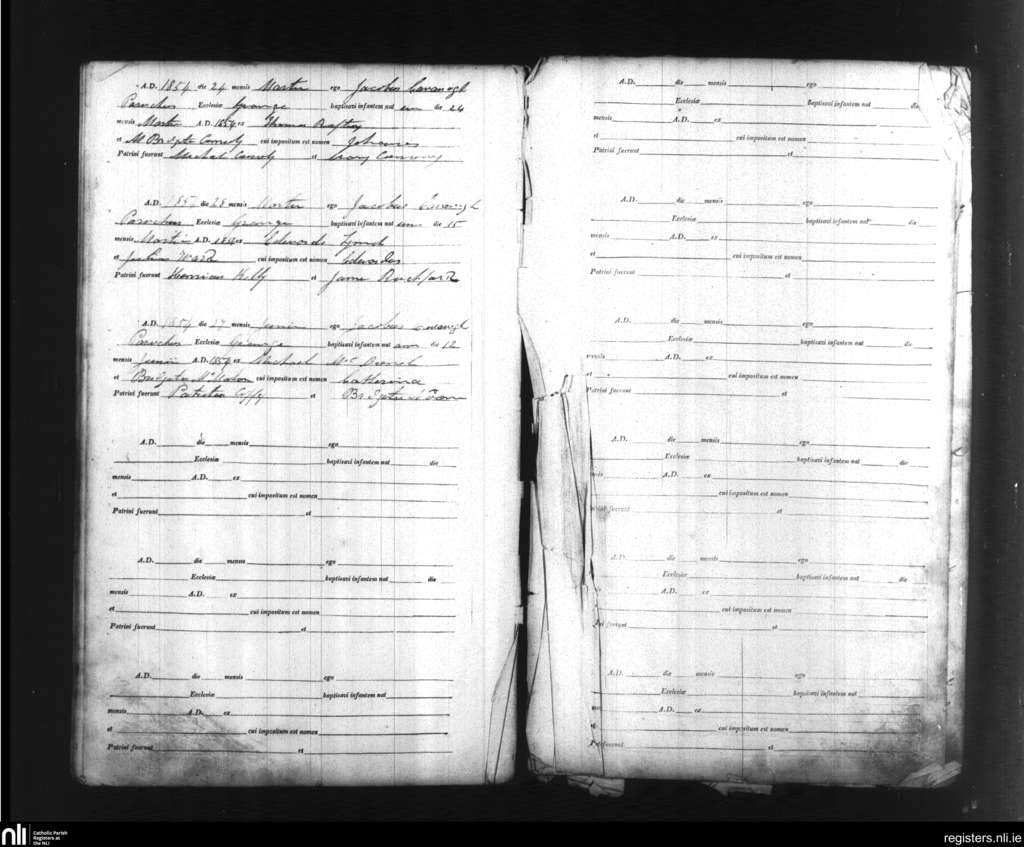 A.D. 1854 die 24 mensis Martii ego Jacobus Cavanagh
Parochus Ecclesiæ Grange baptisavi infantem nat um die 24
mensis Martii A.D. 1854 ex Thomas Raftery
et M Bridgta Connoly cui impositum est nomen Johannes
Patrini fuerunt Michal Connoly et
A.D. 185 die 28 mensis Martii ego Jacobus Cavanagh
Parochus Ecclesiæ Grange baptisavi infantem nat um die 15
mensis Martii A.D. 1854 ex Edwardo Lynch
et Ward cui impositum est nomen Edwardus
Patrini fuerunt Henricus Kelly et Jame Rochford
A.D. 1854 die 27 mensis Junii ego Jacobus Cavanagh
Parochus Ecclesiæ Grange baptisavi infantem nat am die 12
mensis Junii A.D. 1854 ex Michael Mc
et Bridgeta McMahon cui impositum est nomen Catherina
Patrini fuerunt Patritio et
A.D. die mensis ego
Ecclesiæ baptisavi infantem nat die
mensis A.D. ex
et cui impositum est nomen
Patrini fuerunt et
A.D. die mensis ego
Ecclesiæ baptisavi infantem nat die
mensis A.D. ex
et cui impositum est nomen
Patrini fuerunt et
A.D. die mensis ego
Ecclesiæ baptisavi infantem nat
mensis A.D. ex
et cui impositum est nomen
Patrini fuerunt et
A.D. die mensis ego
Ecclesiæ Baptisavi infantem nat die
mensis A.D. ex
et cui impositum est nomen
Patrini fuerunt et
A.D. die mensis ego
Ecclesiæ baptisavi infantem nat die
mensis A.D. ex
et cui impositum est nomen
Patrini fuerunt et
A.D. die mensis ego
Ecclesiæ baptisavi infantem nat die
mensis A.D. ex
et cui impositum est nomen
Patrini fuerunt et
A.D. die mensis ego
Ecclesiæ baptisavi infantem nat die
A.D. ex
cui impositum est nomen
fuerunt et
A.D. die mensis ego
Ecclesiæ baptisavi infantem nat die
A.D. ex
cui impositum est nomen
fuerunt et
A.D. die mensis ego
Ecclesiæ baptisavi infantem nat
A.D. ex
et cui impositum est nomen
fuerunt et
nli Catholic Parish
Registers at
the NLI
registers.nli.ie